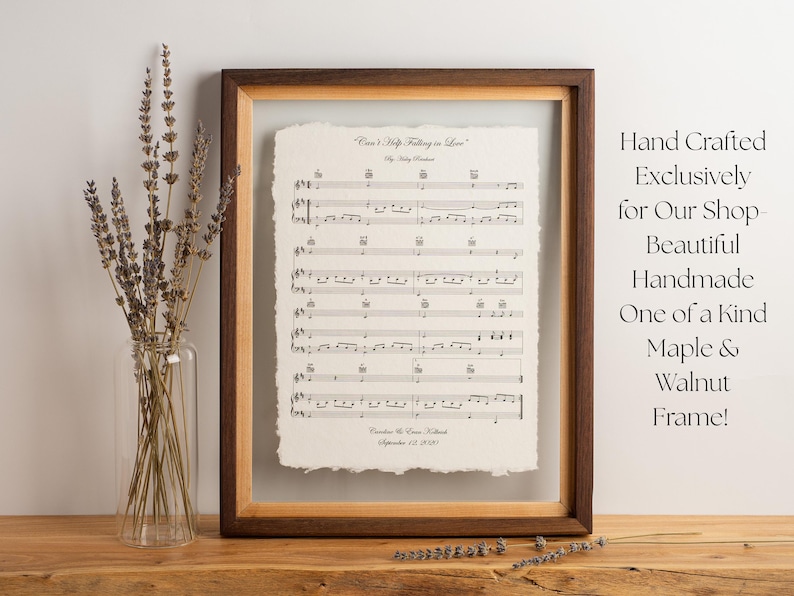 "Can't Help Falling in Love"
By: Haley Reinhart
Caroline & Evan Kolbeck
September 12, 2020
Hand Crafted
Exclusively
for Our Shop-
Beautiful
Handmade
One of a Kind
Maple &
Walnut
Frame!